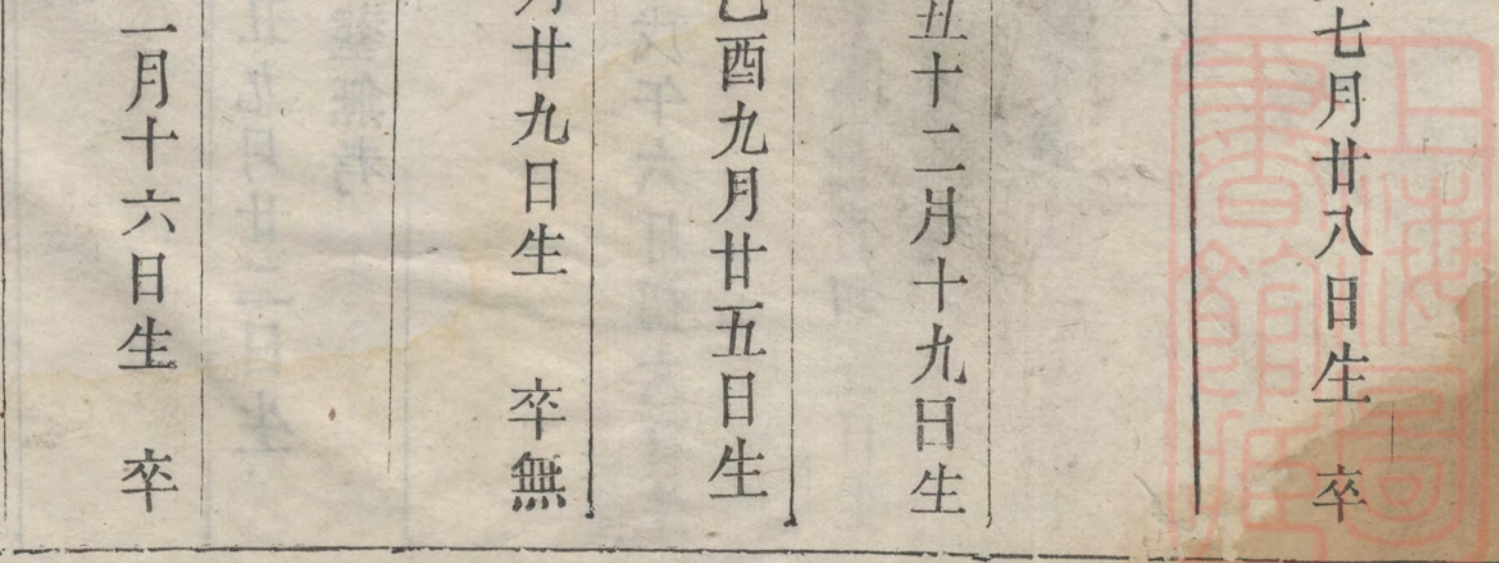 七月廿八日生 卒
丑十二月十九日生
乙酉九月廿五日生
月廿九日生 卒無
一月十六日生 卒
上海圖書館藏